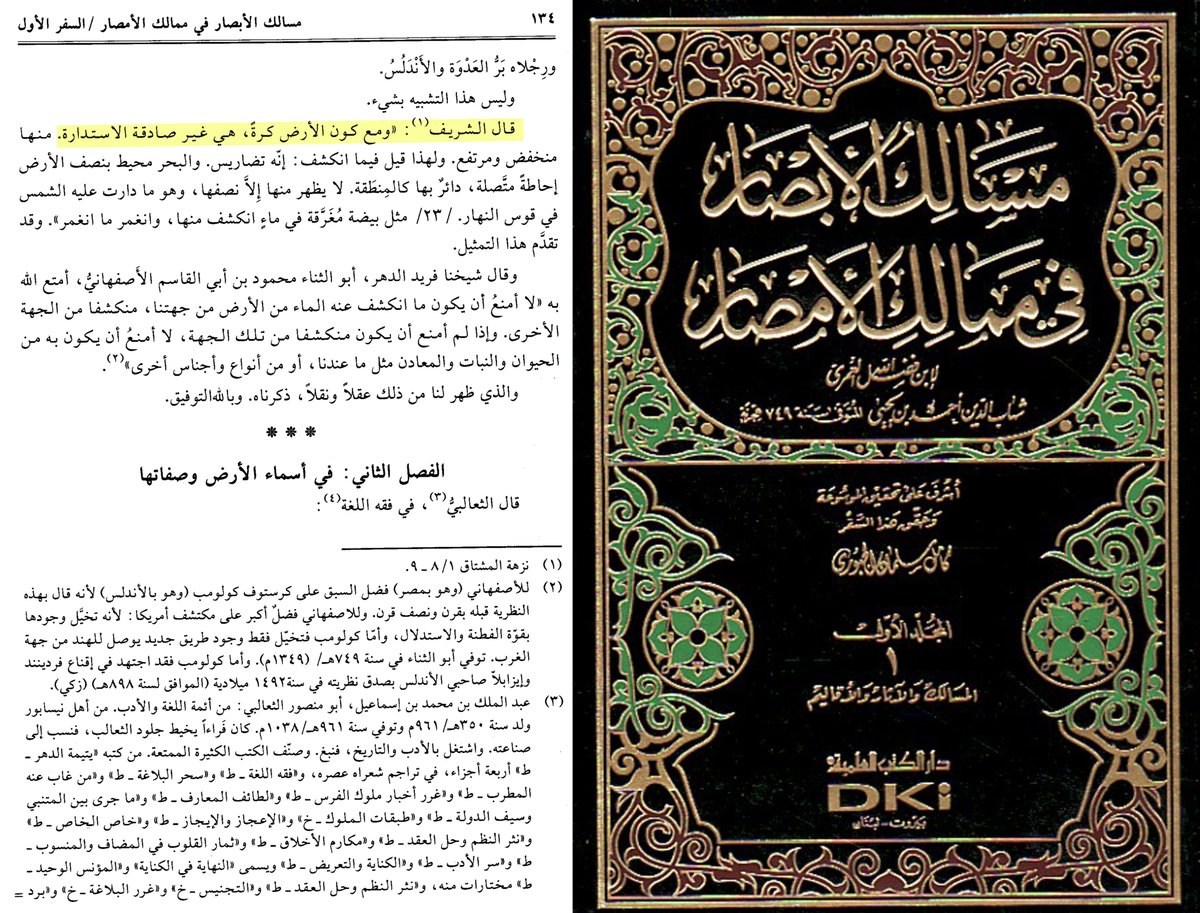 ١٣٤
مسالك الأبصار في ممالك الأمصار / السفر الأول
ورِجْلاه بَرُّ العَدْوَة والأَنْدَلُسُ.
وليس هذا التشبيه بشيء.
قال الشريف(١): «ومع كون الأرض كرةً، هي غير صادقة الاستدارة. منها
منخفض ومرتفع. ولهذا قيل فيما انكشف: إنّه تضاريس. والبحر محيط بنصف الأرض
إحاطةً متَّصلة، دائرٌ بها كالمِنطَقة. لا يظهر منها إلاَّ نصفها، وهو ما دارت عليه الشمس
في قوس النهار. /٢٣/ مثل بيضة مُغَرَّقة في ماءٍ انكشف منها، وانغمر ما انغمر». وقد
تقدَّم هذا التمثيل.
وقال شيخنا فريد الدهر، أبو الثناء محمود بن أبي القاسم الأَصفهانيُّ، أمتع الله
به «لا أمنعُ أن يكون ما انكشف عنه الماء من الأرض من جهتنا، منكشفا من الجهة
الأخرى. وإذا لم أمنع أن يكون منكشفا من تلك الجهة، لا أمنعُ أن يكون به من
الحيوان والنبات والمعادن مثل ما عندنا، أو من أنواع وأجناس أخرى»(٢).
والذي ظهر لنا من ذلك عقلاً ونقلاً، ذكرناه. وبالله التوفيق.
* * *
الفصل الثاني: في أسماء الأرض وصفاتها
قال الثعالبيُّ(٣)، في فقه اللغة(٤):
(١) نزهة المشتاق ٨/١ ـ ٩.
(٢) للأصفهاني (وهو بمصر) فضل السبق على كرستوف كولومب (وهو بالأندلس) لأنه قال بهذه
النظرية قبله بقرن ونصف قرن. وللاصفهاني فضلٌ أكبر على مكتشف أمريكا: لأنه تخيَّل وجودها
بقوّة الفطنة والاستدلال، وأمّا كولومب فتخيَّل فقط وجود طريق جديد يوصل للهند من جهة
الغرب. توفي أبو الثناء في سنة ٧٤٩هـ/ (١٣٤٩م). وأما كولومب فقد اجتهد في إقناع فرديند
وإيزابلاّ صاحبي الأندلس بصدق نظريته في سنة١٤٩٢ ميلادية (الموافق لسنة ٨٩٨هـ) (زكي).
(٣) عبد الملك بن محمد بن إسماعيل، أبو منصور الثعالبي: من أئمة اللغة والأدب. من أهل نيسابور
ولد سنة ٣٥٠هـ/٩٦١م وتوفي سنة ٩٦١هـ/١٠٣٨م. كان فَراءاً يخيط جلود الثعالب، فنسب إلى
صناعته. واشتغل بالأدب والتاريخ، فنبغ. وصنّف الكتب الكثيرة الممتعة. من كتبه «يتيمة الدهر ـ
ط» أربعة أجزاء، في تراجم شعراه عصره، و«فقه اللغة ـ ط» و«سحر البلاغة ـ ط» و«من غاب عنه
المطرب ـ ط» و«غرر أخبار ملوك الفرس ـ ط» و«لطائف المعارف ـ ط» و«ما جرى بين المتنبي
وسيف الدولة ـ ط» و«طبقات الملوك ـ خ» و«الإعجاز والإيجاز ـ ط» و«خاص الخاص ـ ط»
و«نثر النظم وحل العقد ـ ط» و«مكارم الأخلاق ـ ط» و«ثمار القلوب في المضاف والمنسوب ـ
ط» و«سر الأدب ـ ط» و«الكناية والتعريض ـ ط» ويسمى «النهاية في الكناية» و«المؤنس الوحيد ـ
ط» مختارات منه، و«نثر النظم وحل العقد ـ ط» و«التجنيس ـ خ» و«غرر البلاغة ـ خ» و«برد =
مسالك الأبصار
في ممالك الأمصار
لابن فضل الله العمري
شهاب الدين أحمد بن يحيى المتوفى سنة ٧٤٩ هجرية
أشرف على تحقيق الموسوعة
وحقق هذا السفر
كامل سلمان الجبوري
المجلد الأول
١
المسالك والآثار والأقاليم
دار الكتب العلمية
DKi
بيروت - لبنان